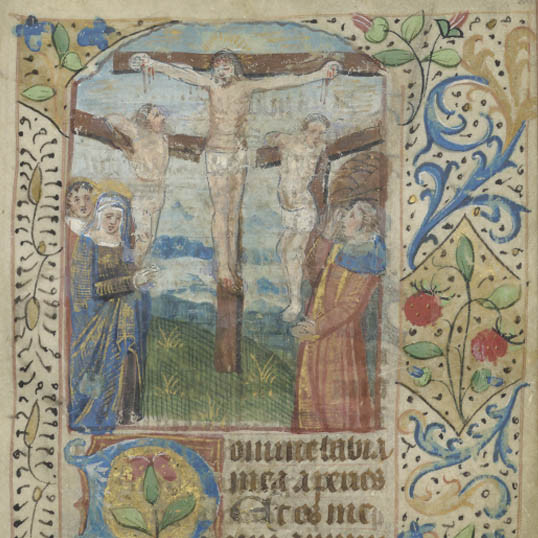 Domine labia
mea aperies
Et os me